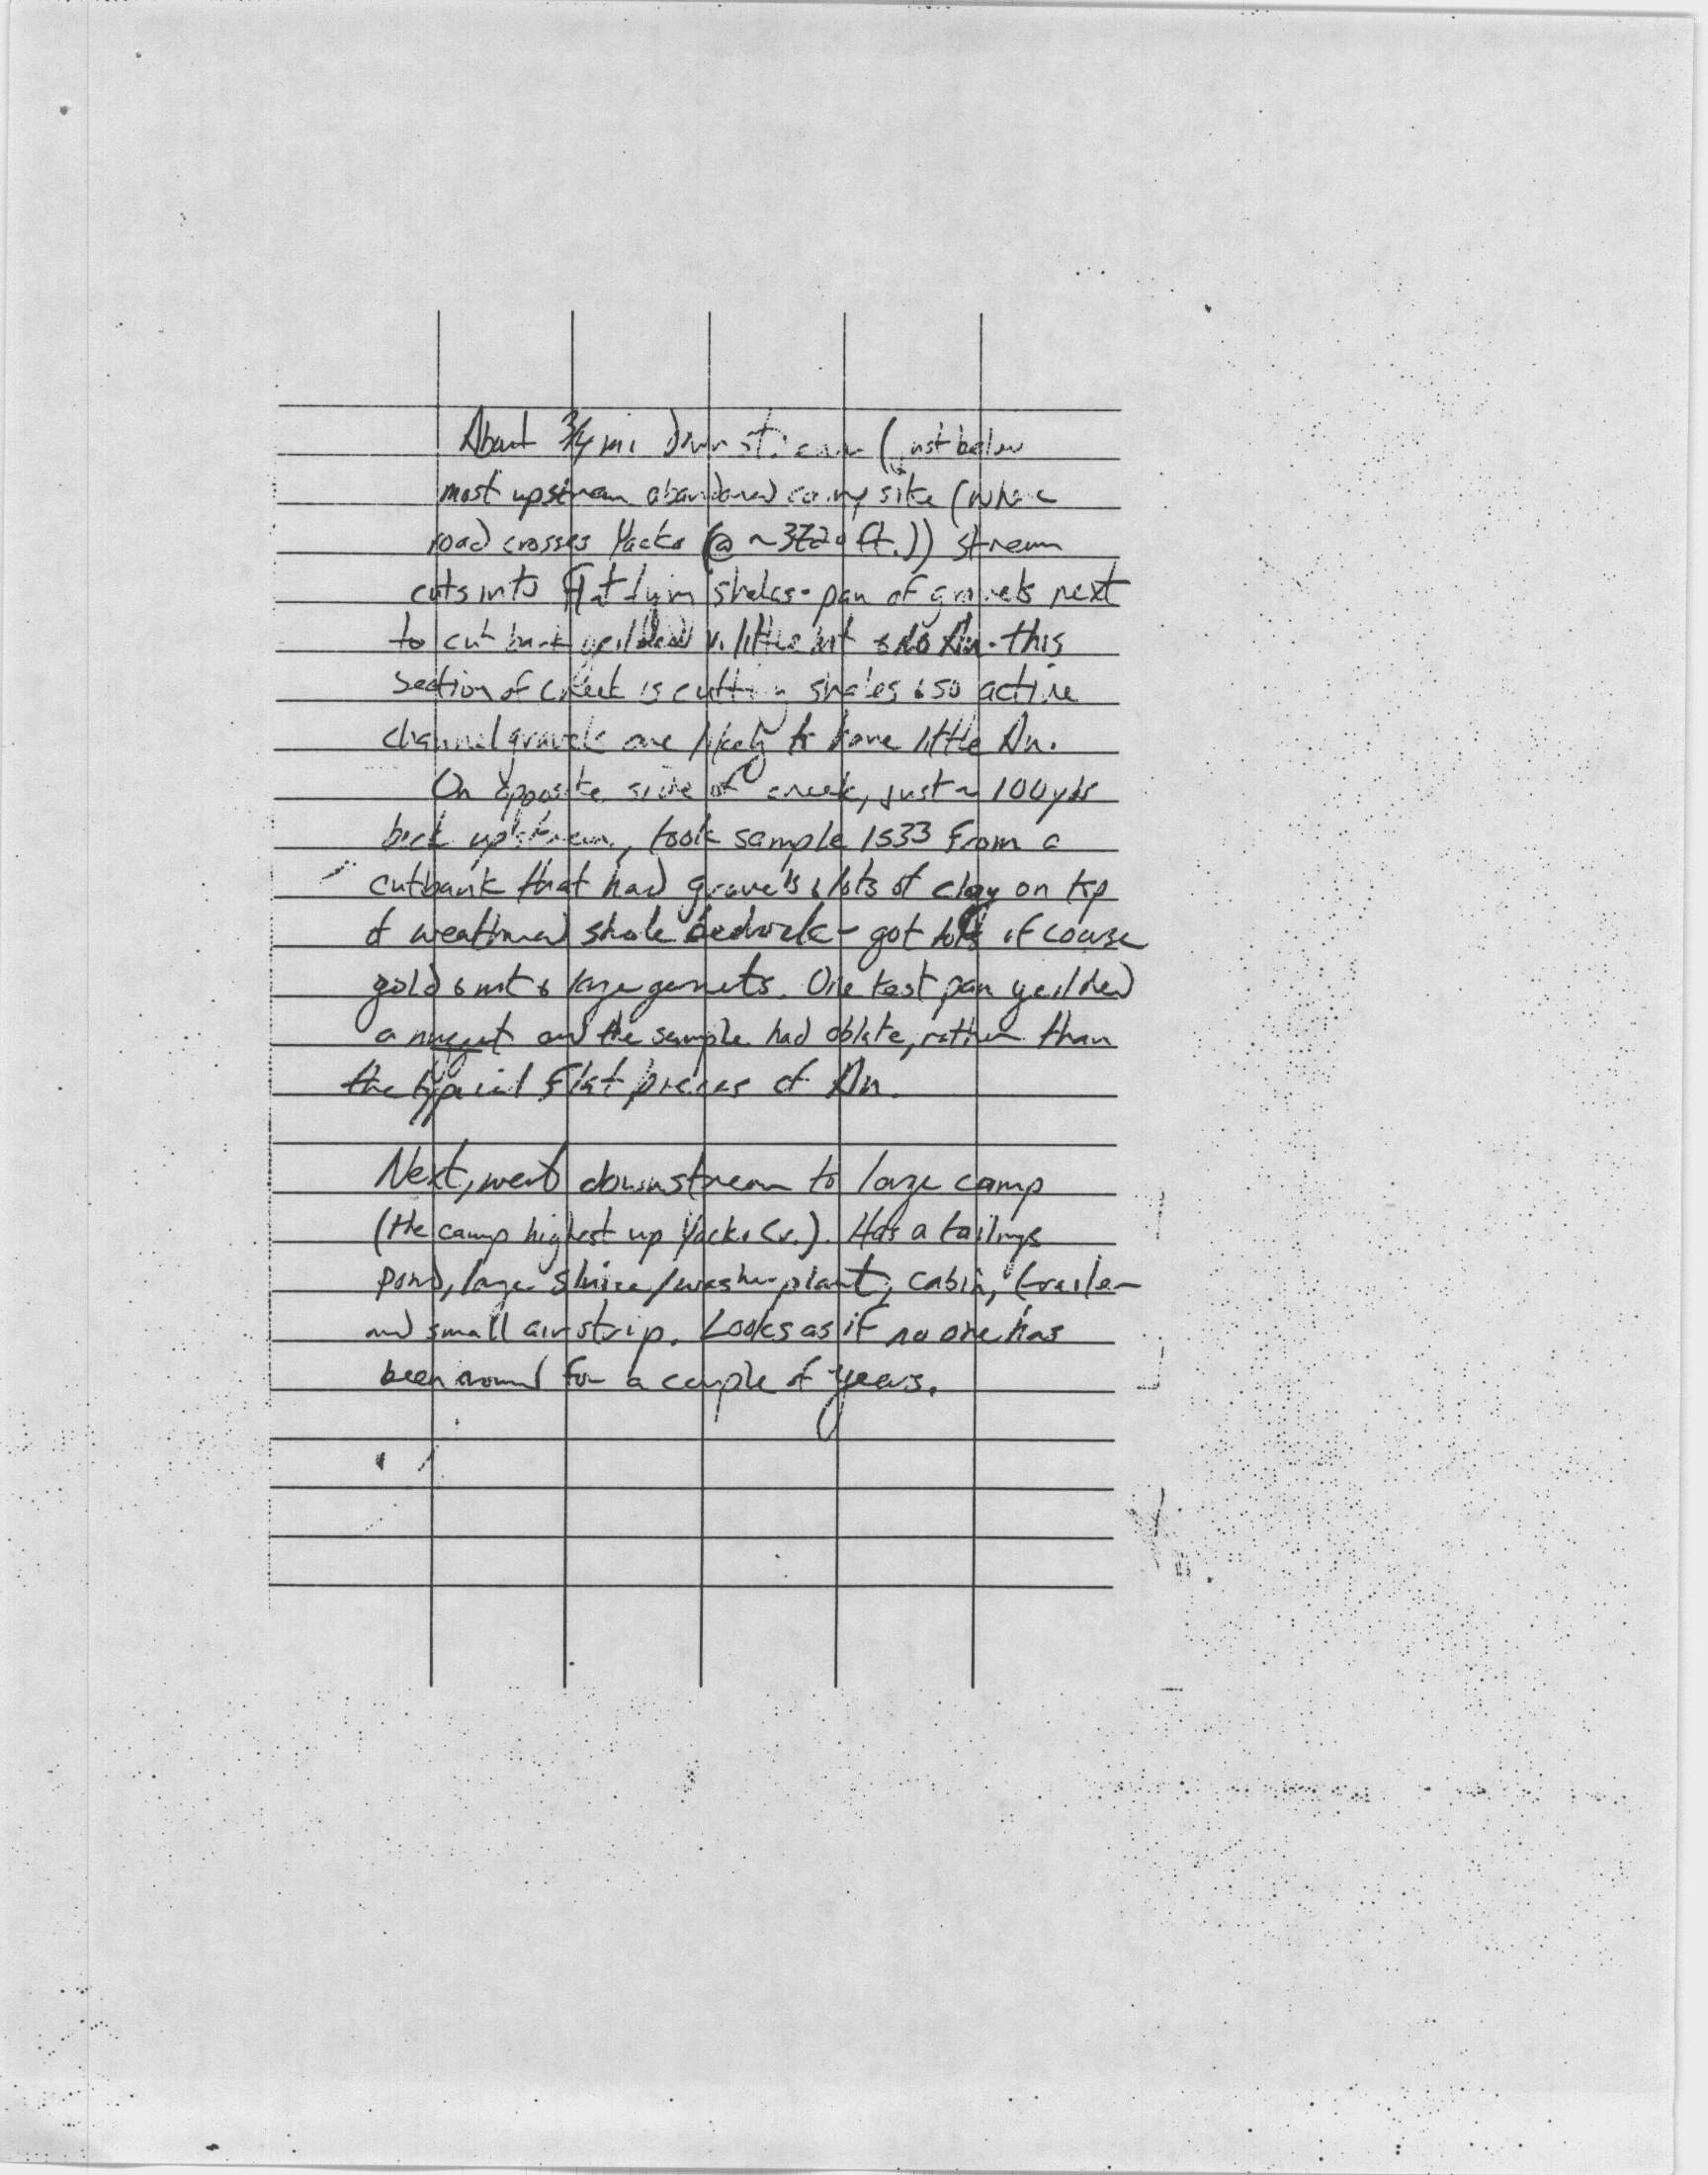 About 3/4 mi Downstream (just below
most upstream abandoned camp site (where
road crosses Yacko (@ ~ ft.)) stream
cuts into flat lying shales - pan of gravels next
to cut bank yeilded v. little mt & no Au. this
section of creek is cutting shales & so active
channel gravels are likely to have little Au.
On opposite side of creek, just ~ 100yds
back upstream, took sample 1533 From a
cutbank that had gravels & lots of clay on top
of weathered shale bedrock - got lots of coarse
gold & mt & large garnets. One test pan yeilded
a nugget and the sample had oblate, rather than
the typical Flat pieces of Au.
Next, went downstream to large camp
(the camp highest up Yacko Cr.). Has a tailings
pond, large sluice/washer plant, cabin, trailer
and small airstrip. Looks as if no one has
been around for a couple of years.